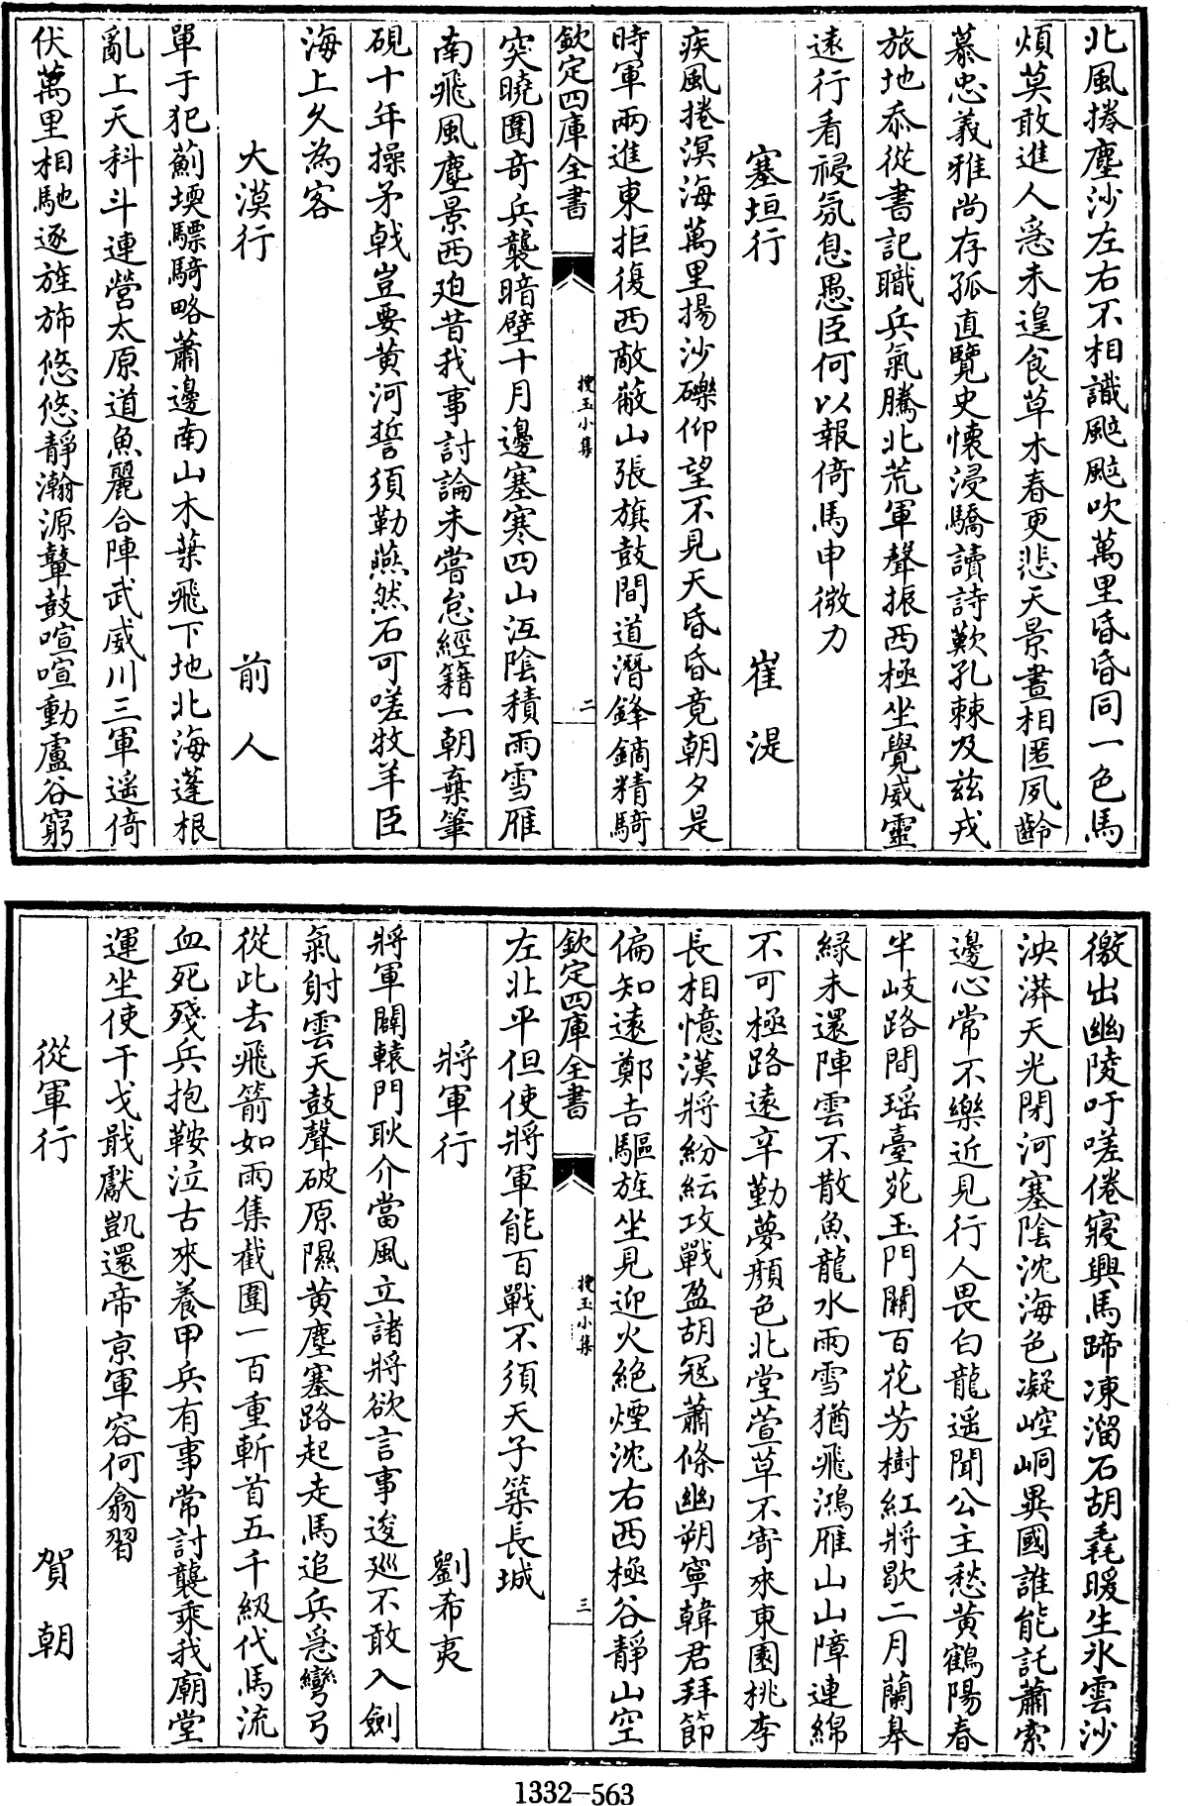 北風捲塵沙左右不相識颾颾吹萬里昏昏同一色馬
煩莫敢進人急未遑食草木春更悲天景晝相匿夙齡
慕忠義雅尚存孤直覽史懷浸驕讀詩歎孔棘及兹戎
旅地忝從書記職兵氣騰北荒軍聲振西極坐覺威靈
遠行看祲氛息愚臣何以報倚馬申微力
塞垣行 崔湜
疾風捲溟海萬里揚沙礫仰望不見天昏昏竟朝夕是
時軍兩進東拒復西敵蔽山張旗鼓間道潛鋒鏑精騎
欽定四庫全書 搜玉小集 二
突曉圍奇兵襲暗壁十月邊塞寒四山沍陰積雨雪雁
南飛風塵景西迫昔我事討論未嘗怠經籍一朝棄筆
硯十年操矛戟豈要黄河誓須勒燕然石可嗟牧羊臣
海上久為客
大漠行 前人
單于犯薊壖驃騎略蕭邊南山木葉飛下地北海蓬根
亂上天科斗連營太原道魚麗合陣武威川三軍遥倚
伏萬里相馳逐旌旆悠悠靜瀚源鼙鼓喧喧動盧谷窮
徼出幽陵吁嗟倦寢興馬蹄凍溜石胡毳暖生氷雲沙
泱漭天光閉河塞陰沈海色凝崆峒異國誰能託蕭索
邊心常不樂近見行人畏白龍遥聞公主愁黄鶴陽春
半岐路間瑶臺苑玉門關百花芳樹紅將歇二月蘭皋
緑未還陣雲不散魚龍水雨雪猶飛鴻雁山山障連綿
不可極路遠辛勤夢顔色北堂萱草不寄來東園桃李
長相憶漢將紛紜攻戰盈胡寇蕭條幽朔寧韓君拜節
偏知遠鄭吉驅旌坐見迎火絶煙沈右西極谷靜山空
欽定四庫全書 搜玉小集 三
左北平但使將軍能百戰不須天子築長城
將軍行 劉希夷
將軍闢轅門耿介當風立諸將欲言事逡廵不敢入劍
氣射雲天鼓聲破原隰黄塵塞路起走馬追兵急彎弓
從此去飛箭如雨集截圍一百重斬首五千級代馬流
血死殘兵抱鞍泣古來養甲兵有事常討襲乘我廟堂
運坐使干戈戢獻凱還帝京軍容何翕習
從軍行 賀朝
1332-563